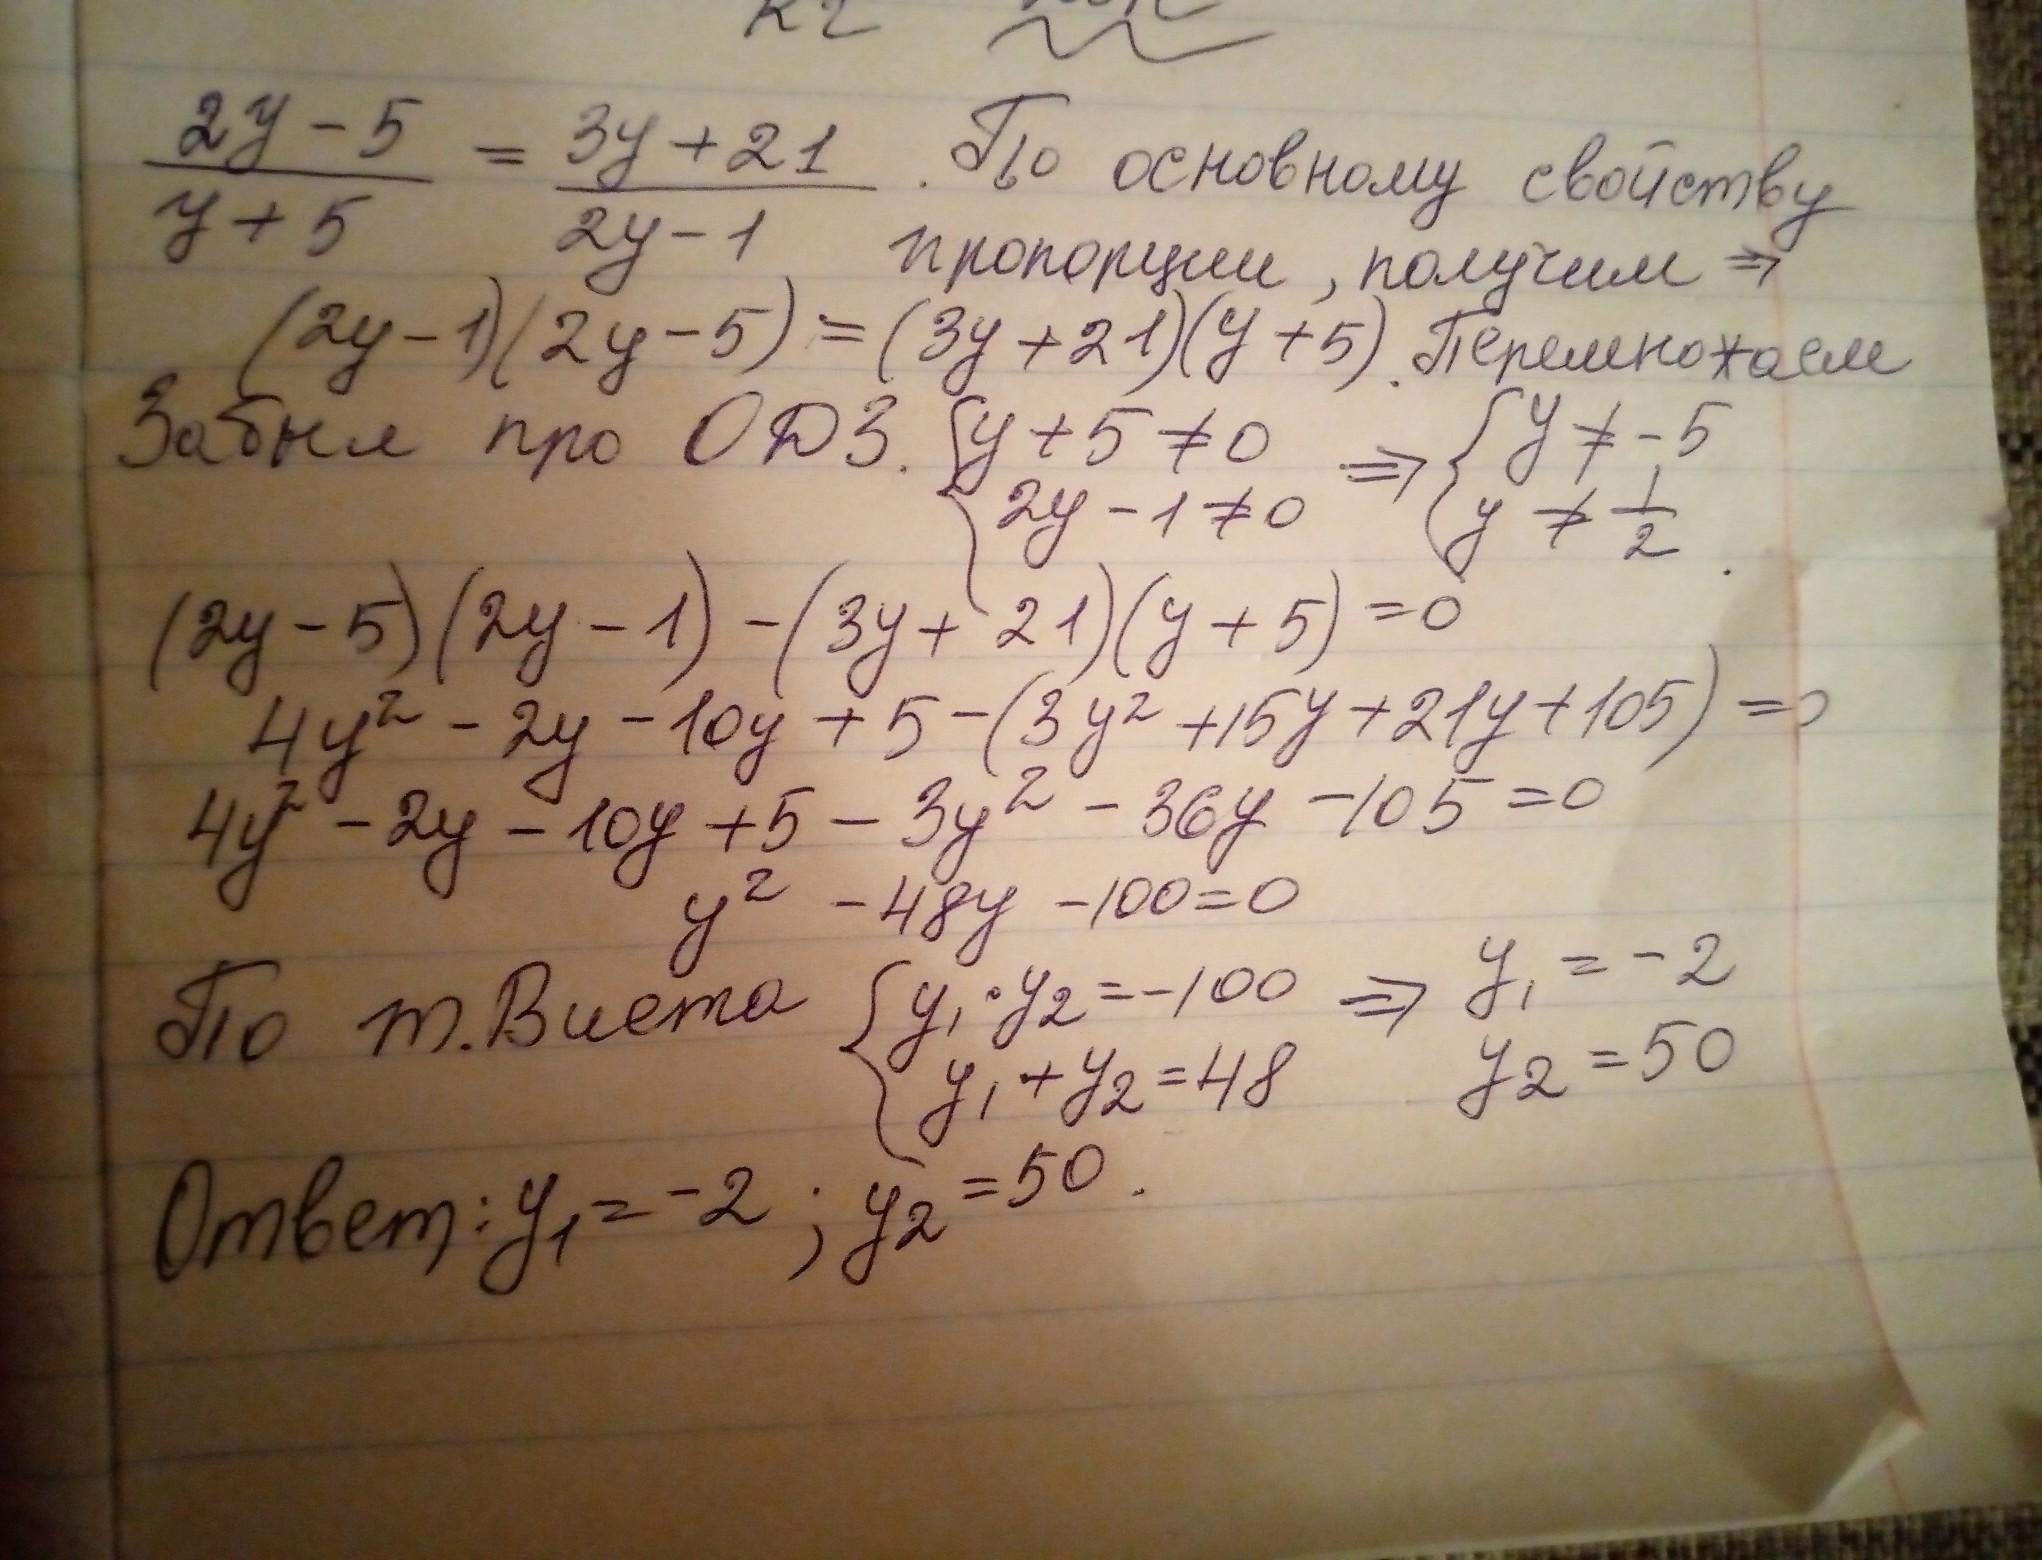 кг
(2y - 5)/(y + 5) = (3y + 21)/(2y - 1) . По основному свойству
пропорции, получим ⇒
(2y - 1)(2y - 5) = (3y + 21)(y + 5). Перемножаем
Забыл про ОДЗ. { y + 5 ≠ 0 ⇒ { y ≠ -5
2y - 1 ≠ 0 y ≠ 1/2 .
(2y - 5)(2y - 1) - (3y + 21)(y + 5) = 0
4y² - 2y - 10y + 5 - (3y² + 15y + 21y + 105) = 0
4y² - 2y - 10y + 5 - 3y² - 36y - 105 = 0
y² - 48y - 100 = 0
По т. Виета { y₁ · y₂ = -100 ⇒ y₁ = -2
y₁ + y₂ = 48 y₂ = 50
Ответ: y₁ = -2 ; y₂ = 50 .